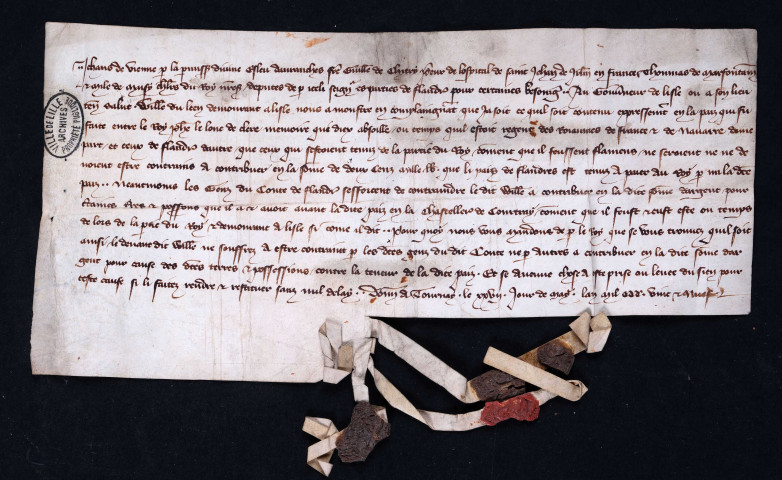 Jehans de Vienne p la permiss divine esleu davranches frere Guille de Chitry de lospital de saint Jehan de Jhrlm en france Thommas de Marfontaine
mille de chlrs du Roy nres deputes de p icelli seign es parties de flandre pour certaines besoig Au Gouverneur de lisle ou a son lieu
ten salut Wille du lieu demourant a lisle nous a monstre en complaignant que ja soit ce quil soit contenu expressemt en la pais qui fu
faite entre le Roy phe le lonc de clere memoire qui diex absoille ou temps quil estoit regens des Roiaumes de france & de Navarre dune
part et ceux de flandres dautre que ceux qui se seroient tenu de la partie du Roy coment que il feussent flamens ne seroient ne ne de
vroient estre contrains a contribuer en la some de deus Cens mille lb que li pais de flandres est tenus a paier au Roy p mi la dce
pais Neantmoins les Gens du Conte de flandres sefforcent de contraindre le dit Wille a contribuer en la dite some dargent pour
certaines tres & possessions que il a & avoit avant la dite pais en la Chastellerie de Courtray coment que il feust & eust este ou temps
de lors de la ptie du Roy & demourant a lisle si come il dit Pour quoy nous vous mandons de p le Roy que se vous trouvez quil soit
ainsi le devant dit Wille ne souffrez a estre contraint p les dctes gens du dit Conte ne p autres a contribuer en la dite some dar
gent pour cause des dctes terres & possessions contre la teneur de la dite pais Et se aucune chose a este prise ou levee du sien pour
ceste cause si li faites rendre & restituer sanz nul delay Donn a Tournay le xxvij jour de may lan mil CCC vint & nuef
VILLE DE LILLE
ARCHIVES
PROPRIETE PUBLIQUE